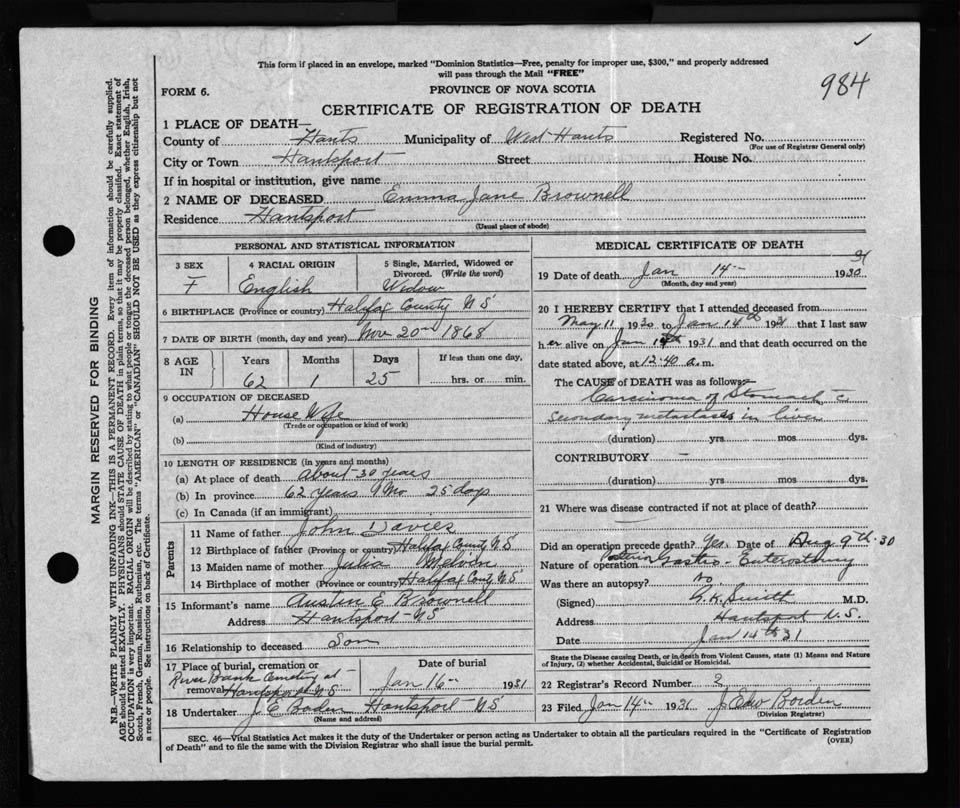 This form if placed in an envelope, marked "Dominion Statistics—Free, penalty for improper use, $300," and properly addressed
will pass through the Mail "FREE"
984
FORM 6.
PROVINCE OF NOVA SCOTIA
CERTIFICATE OF REGISTRATION OF DEATH
1 PLACE OF DEATH—
County of Hants Municipality of West Hants Registered No.
(For use of Registrar General only)
City or Town Hantsport Street House No.
If in hospital or institution, give name
2 NAME OF DECEASED Emma Jane Brownell
Residence Hantsport
(Usual place of abode)
PERSONAL AND STATISTICAL INFORMATION
3 SEX 4 RACIAL ORIGIN 5 Single, Married, Widowed or
Divorced. (Write the word)
F English Widow
6 BIRTHPLACE (Province or country) Halifax County N S
7 DATE OF BIRTH (month, day and year) Nov 20th 1868
8 AGE IN Years Months Days If less than one day,
62 1 25 hrs. or min.
9 OCCUPATION OF DECEASED
(a) House Wife
(Trade or occupation or kind of work)
(b)
(Kind of industry)
10 LENGTH OF RESIDENCE (in years and months)
(a) At place of death about 30 years
(b) In province 62 years 1 Mo 25 days
(c) In Canada (if an immigrant)
Parents
11 Name of father John Davies
12 Birthplace of father (Province or country) Halifax County N S
13 Maiden name of mother Julia Melvin
14 Birthplace of mother (Province or country) Halifax Cont N S
15 Informant's name Austin E Brownell
Address Hantsport N S
16 Relationship to deceased Son
17 Place of burial, cremation or removal Date of burial
River Bank Cemetery at
Hantsport N S Jan 16th 1931
18 Undertaker J E Boden Hantsport N S
(Name and address)
MEDICAL CERTIFICATE OF DEATH
19 Date of death Jan 14th 1930 31
(Month, day and year)
20 I HEREBY CERTIFY that I attended deceased from
May 11 1930 to Jan 14th 1931 that I last saw
her alive on Jan 14th 1931 and that death occurred on the
date stated above, at 12.40 a.m.
The CAUSE of DEATH was as follows:
Carcinoma of Stomach c
secondary metastases in liver
(duration) yrs. mos dys.
CONTRIBUTORY
(duration) yrs. mos. dys.
21 Where was disease contracted if not at place of death?
Did an operation precede death? Yes. Date of Aug 9th 30
Nature of operation Posterior Gastro-Enterostomy
Was there an autopsy? No
(Signed) M.D.
Address Hantsport N.S.
Date Jan 14th 31
State the Disease causing Death, or in death from Violent Causes, state (1) Means and Nature
of Injury, (2) whether Accidental, Suicidal or Homicidal.
22 Registrar's Record Number 2
23 Filed Jan 14th 1931 J Edw Borden
(Division Registrar)
SEC. 46—Vital Statistics Act makes it the duty of the Undertaker or person acting as Undertaker to obtain all the particulars required in the "Certificate of Registration
of Death" and to file the same with the Division Registrar who shall issue the burial permit.
(OVER)
MARGIN RESERVED FOR BINDING
N.B.—WRITE PLAINLY WITH UNFADING INK—THIS IS A PERMANENT RECORD. Every item of information should be carefully supplied.
AGE should be stated EXACTLY. PHYSICIANS should STATE CAUSE OF DEATH in plain terms, so that it may be properly classified. Exact statement of
OCCUPATION is very important. RACIAL ORIGIN will be described by stating to what people or tongue the deceased person belonged, whether English, Irish,
Scotch, French, German, Russian, Ruthenian, etc. The terms "AMERICAN" or "CANADIAN" SHOULD NOT BE USED as they express citizenship but not
a race or people. See instructions on back of Certificate.